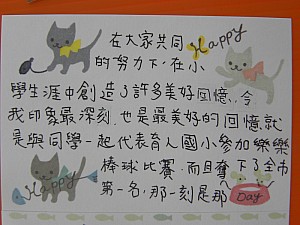 在大家共同 Happy
的努力下,在小
學生涯中創造了許多美好回憶,令
我印象最深刻.也是最美好的回憶就
是與同學一起代表育人國小參加樂樂
Happy 棒球比賽.而且奪下了全市
第一名,那一刻是那 Day